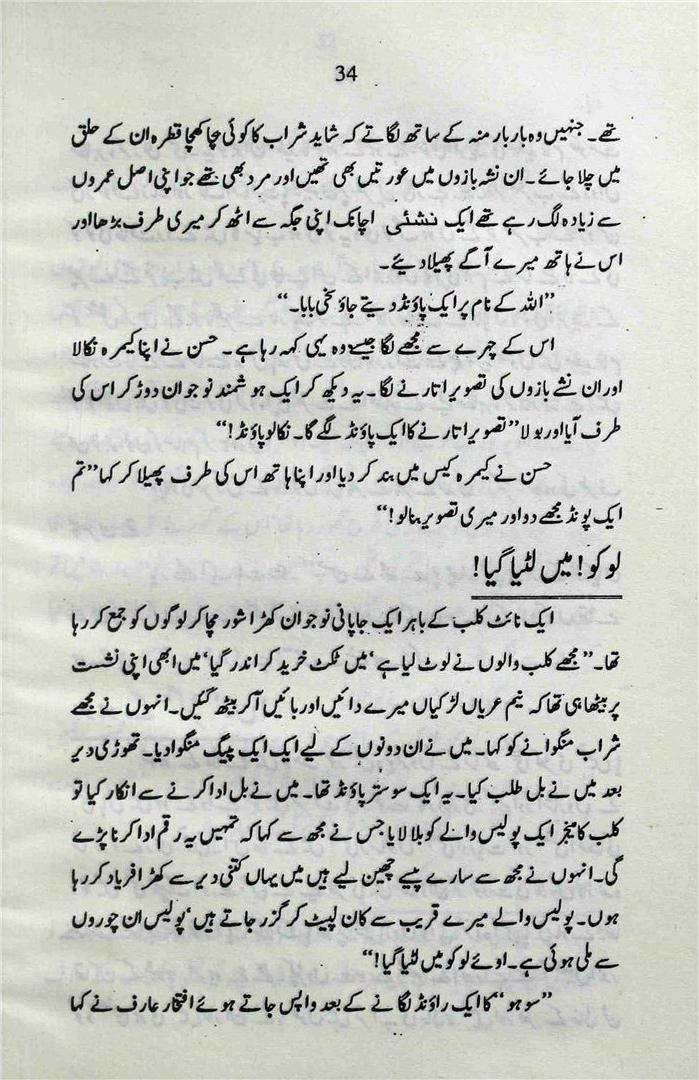 34
تھے۔ جنہیں وہ بار بار منہ کے ساتھ لگاتے کہ شاید شراب کا کوئی بچا کھچا قطرہ ان کے حلق
میں چلا جائے۔ ان نشہ بازوں میں عورتیں بھی تھیں اور مرد بھی تھے جو اپنی اصل عمروں
سے زیادہ لگ رہے تھے ایک نشئی اچانک اپنی جگہ سے اٹھ کر میری طرف بڑھا اور
اس نے ہاتھ میرے آگے پھیلا دیئے۔
”اللہ کے نام پر ایک پاؤنڈ دیتے جاؤ سخی بابا۔“
اس کے چہرے سے مجھے لگا جیسے وہ یہی کہہ رہا ہے۔ حسن نے اپنا کیمرہ نکالا
اور ان نشے بازوں کی تصویر اتارنے لگا۔ یہ دیکھ کر ایک ہوشمند نوجوان دوڑ کر اس کی
طرف آیا اور بولا ”تصویر اتارنے کا ایک پاؤنڈ لگے گا۔ نکالو پاؤنڈ!“
حسن نے کیمرہ کیس میں بند کر دیا اور اپنا ہاتھ اس کی طرف پھیلا کر کہا ”تم
ایک پونڈ مجھے دو اور میری تصویر بنالو!“
لوکو! میں لٹیا گیا!
ایک نائٹ کلب کے باہر ایک جاپانی نوجوان کھڑا شور مچا کر لوگوں کو جمع کر رہا
تھا۔ ”مجھے کلب والوں نے لوٹ لیا ہے‘ میں ٹکٹ خرید کر اندر گیا‘ میں ابھی اپنی نشست
پر بیٹھا ہی تھا کہ نیم عریاں لڑکیاں میرے دائیں اور بائیں آکر بیٹھ گئیں۔ انہوں نے مجھے
شراب منگوانے کو کہا۔ میں نے ان دونوں کے لیے ایک ایک پیگ منگوا دیا۔ تھوڑی دیر
بعد میں نے بل طلب کیا۔ یہ ایک سو ستر پاؤنڈ تھا۔ میں نے بل ادا کرنے سے انکار کیا تو
کلب کا منیجر ایک پولیس والے کو بلا لایا جس نے مجھ سے کہا کہ تمہیں یہ رقم ادا کرنا پڑے
گی۔ انہوں نے مجھ سے سارے پیسے چھین لیے ہیں میں یہاں کتنی دیر سے کھڑا فریاد کر رہا
ہوں۔ پولیس والے میرے قریب سے کان لپیٹ کر گزر جاتے ہیں‘ پولیس ان چوروں
سے ملی ہوئی ہے۔ اوئے لوکو میں لٹیا گیا!“
”سوہو“ کا ایک راؤنڈ لگانے کے بعد واپس جاتے ہوئے افتخار عارف نے کہا